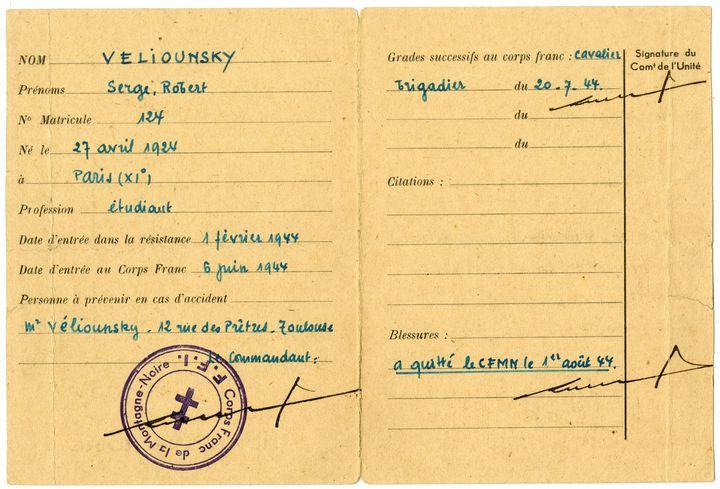 NOM VELIOUNSKY
Prénoms Serge, Robert
No Matricule 124
Né le 27 avril 1924
à Paris (XI°)
Profession étudiant
Date d'entrée dans la résistance 1 février 1944
Date d'entrée au Corps Franc 6 juin 1944
Personne à prévenir en cas d'accident
Mr Véliounsky - 12 rue des Prêtres - Toulouse
Le Commandant :
Corps Franc de la Montagne-Noire
F.F.I.
Grades successifs au corps franc : cavalier
brigadier du 20-7.44.
du
du
Signature du
Comt de l'Unité
Citations :
Blessures :
a quitté le CFMN le 1er août 44.